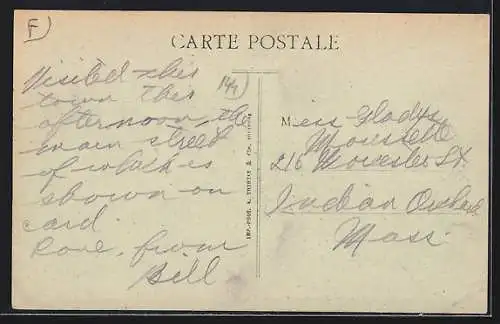 F
CARTE POSTALE
Visited this
town this
afternoon, the
main street
of which is
shown on
card.
Love from
Bill
144
IMP.-PHOT. A. THIRIET & Cie,
Miss Gladys
216 Worcester St
Indian Orchard
Mass.